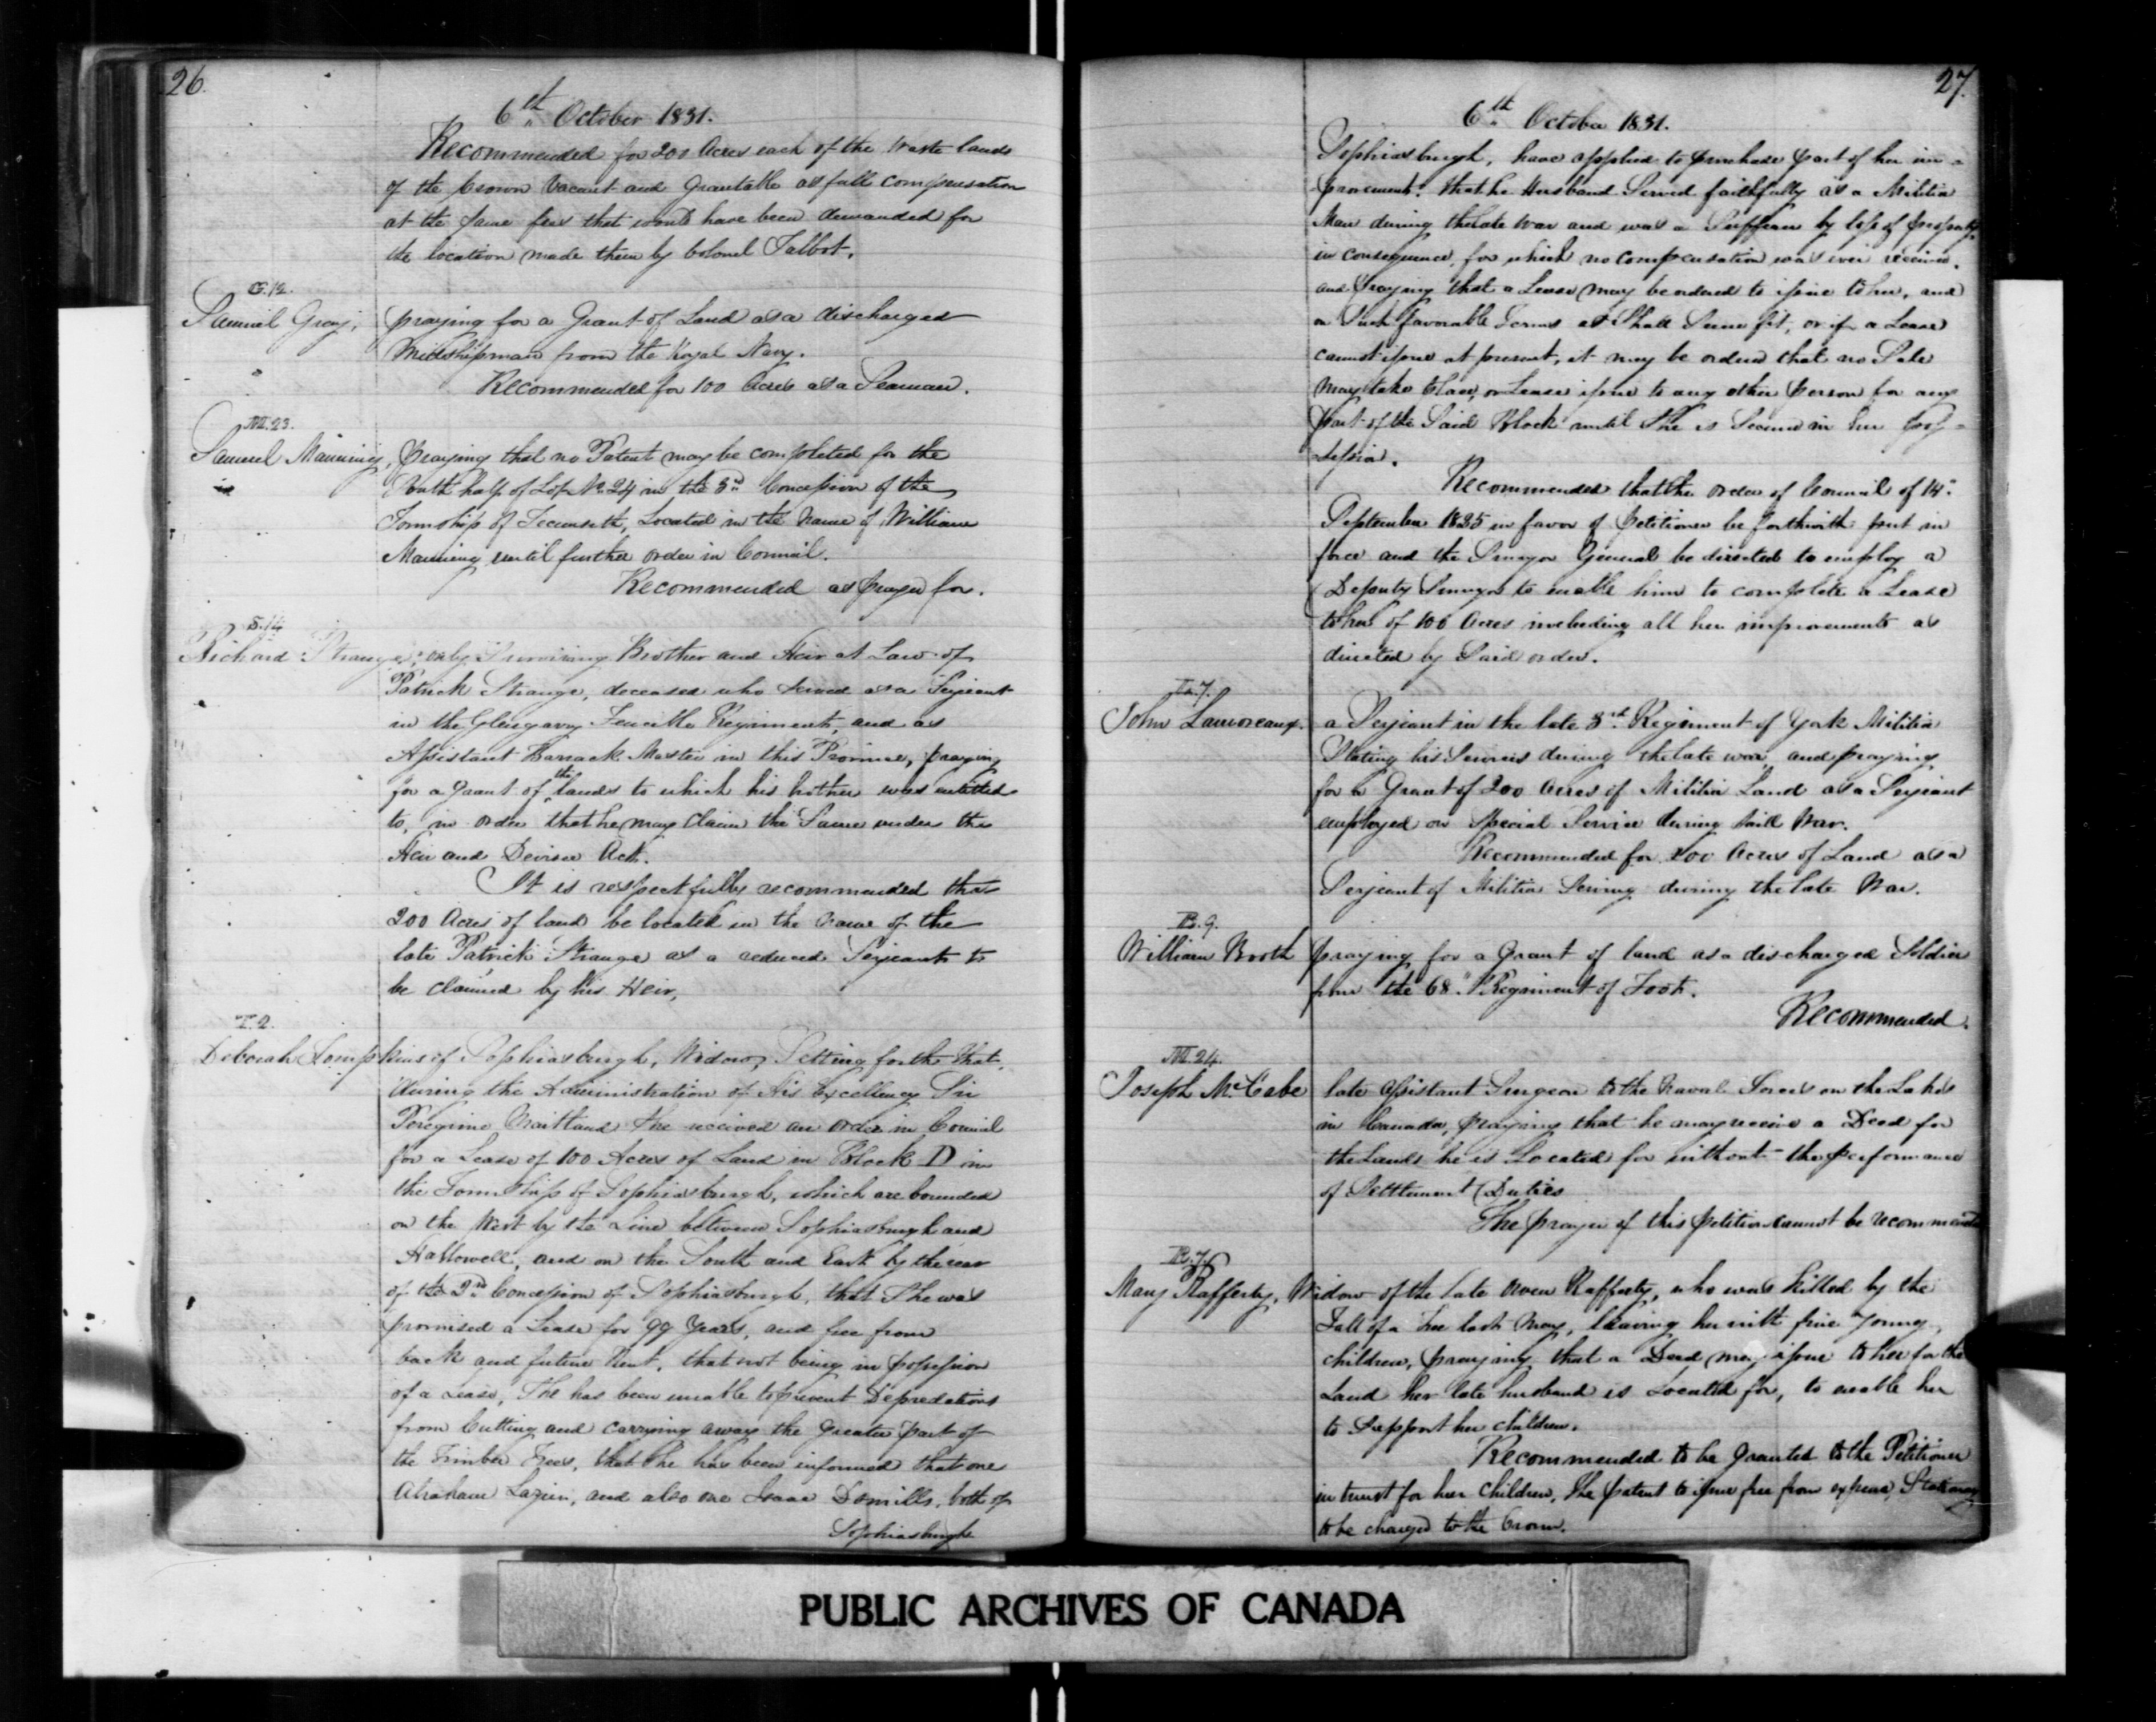 26.
6th October 1831.
Recommended for 200 Acres each of the Waste lands
of the Crown Vacant and Grantable as full compensation
at the same fees that would have been demanded for
the location made them by Colonel Talbot.
G.12.
Samuel Gray, praying for a Grant of Land as a discharged
Midshipman from the Royal Navy.
Recommended for 100 Acres as a Seaman.
M.23.
Samuel Manning, praying that no Patent may be completed for the
South half of Lot No 24 in the 3rd Concession of the
Township of Tecumseth, Located in the Name of William
Manning until further order in Council.
Recommended as prayed for.
S.14
Richard Strange, only Surviving Brother and Heir at Law of
Patrick Strange, deceased who served as a Serjeant
in the Glengarry Fencible Regiment, and as
Assistant Barrack Master in this Province, praying
for a Grant of the lands to which his brother was entitled
to, in order that he may Claim the Same under the
Heir and Devisee Act.
It is respectfully recommended that
200 Acres of land be located in the name of the
late Patrick Strange as a reduced Serjeant to
be Claimed by his Heir.
T.2.
Deborah Tompkins of Sophiasburgh, Widow, Setting forth that
during the Administration of His Excellency Sir
Peregrine Maitland She received an order in Council
for a Lease of 100 Acres of Land in Block D in
the Township of Sophiasburgh, which are bounded
on the West by the Line between Sophiasburgh and
Hallowell, and on the South and East by the rear
of the 2nd Concession of Sophiasburgh, that She was
promised a Lease for 99 Years, and free from
back and future Rent. that not being in possession
of a Lease, She has been unable to prevent Depredations
from Cutting and carrying away the greater part of
the Timber Trees, that She has been informed that one
Abraham Lazier, and also one Isaac Demills, both of
Sophiasburgh
27.
6th October 1831.
Sophiasburgh, have applied to purchase part of her im-
provement. that he Husband Served faithfully as a Militia
Man during the late War and was a Sufferer by loss of property
in consequence, for which no compensation was ever received.
and praying that a Lease may be ordered to issue to her, and
on Such favorable Terms as Shall Seem fit, or if a Lease
cannot issue at present, it may be ordered that no Sale
may take place, or Lease issue to any other person for any
part of the Said Block until She is Secured in her pos-
session.
Recommended that the order of Council of 14th
September 1825 in favor of Petitioner be forthwith put in
force and the Surveyor General be directed to employ a
Deputy Surveyor to enable him to complete a Lease
to her of 100 Acres including all her improvements as
directed by Said order.
L.7.
John Lamoreaux. a Serjeant in the late 3rd Regiment of York Militia
Stating his Services during the late war, and praying
for a Grant of 200 Acres of Militia Land as a Serjeant
employed on Special Service during said War.
Recommended for 200 Acres of Land as a
Serjeant of Militia Serving during the late War.
B.9.
William Booth praying for a Grant of land as a discharged Soldier
from the 68th Regiment of Foot.
Recommended.
M.24.
Joseph McCabe late Assistant Surgeon to the Naval Forces on the Lakes
in Canada, praying that he may receive a Deed for
the Lands he is Located for without the performance
of Settlement Duties
The prayer of this petition cannot be recommended
R.7.
Mary Rafferty, Widow of the late Owen Rafferty, who was killed by the
Fall of a Tree last May, leaving her with five young
children, praying that a Deed may issue to her for the
Land her late husband is Located for, to enable her
to Support her children.
Recommended to be Granted to the Petitioner
in trust for her Children, the patent to issue free from expense,
to be charged to the Crown.
PUBLIC ARCHIVES OF CANADA